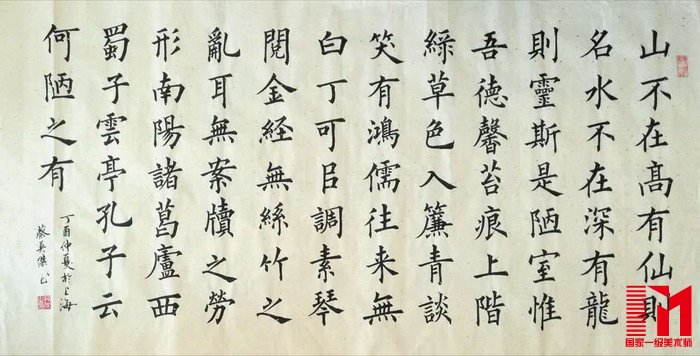 山不在髙有仙則
名水不在深有龍
則靈斯是陋室惟
吾德馨苔痕上階
綠草色入簾青談
笑有鴻儒往来無
白丁可㠯調素琴
閱金經無絲竹之
亂耳無案牘之勞
形南陽諸葛廬西
蜀子雲亭孔子云
何陋之有
丁酉仲夏於上海
蔡英傑书
国家一级美术师